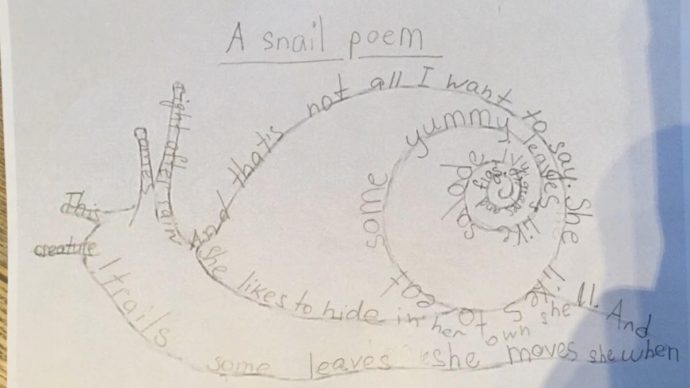 A snail poem
This
creature
comes
right after rain
And she likes to hide in her own shell. And
when she moves she leaves some trails!
And thats not all I want to say. She likes to eat some yummy leaves like salade